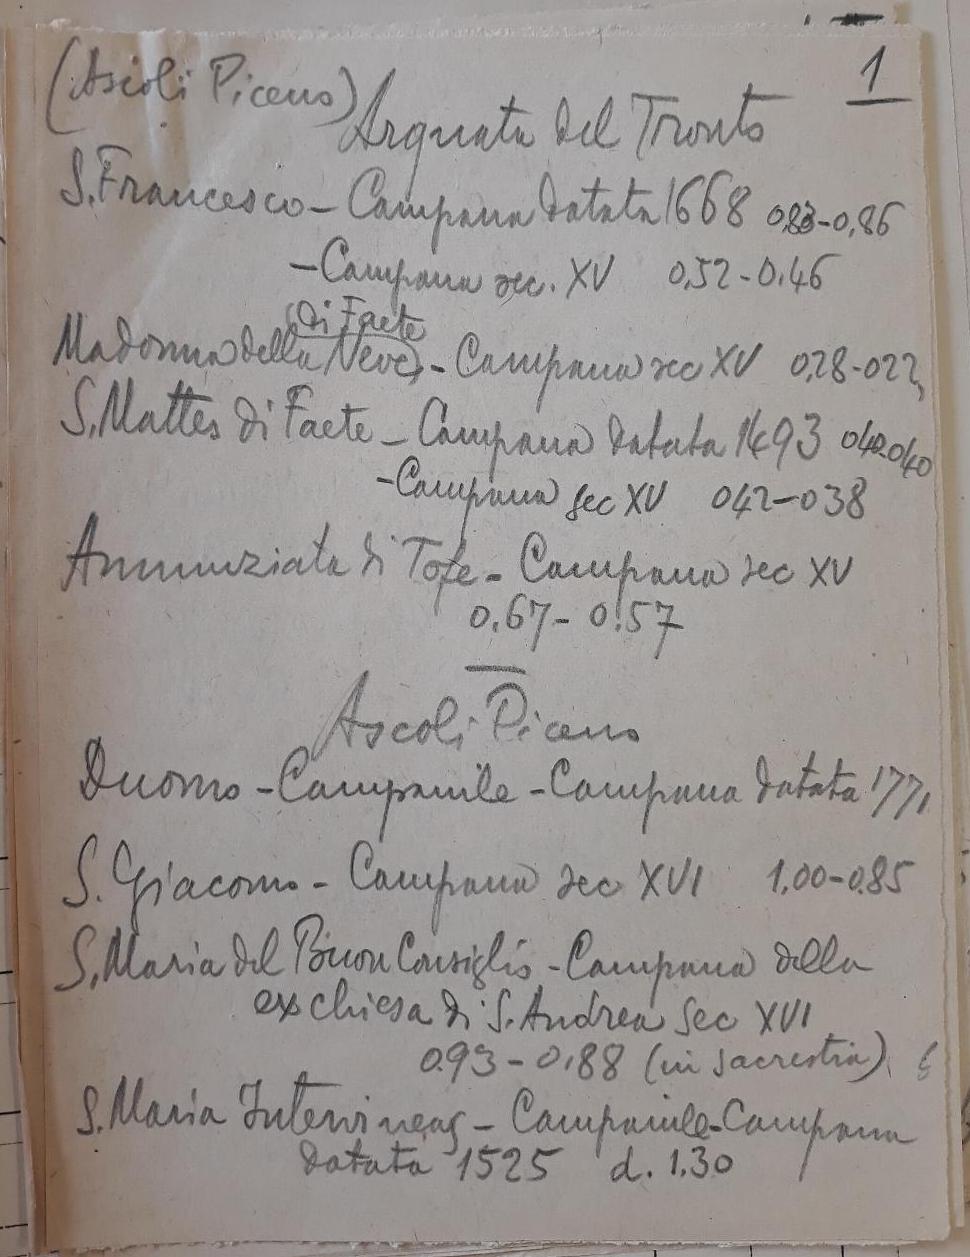 1
(Ascoli Piceno) Arquata del Tronto
S. Francesco - Campana datata 1668 0,83-0,86
- Campana sec. XV 0,52-0,46
(di Faete
Madonna della Neve) - Campana sec XV 0,28-022,
S. Matteo di Faete - Campana datata 1493 040-040
- Campana sec XV 042-038
Annunziata di Tofe - Campana sec XV
0.67- 0.57
Ascoli Piceno
Duomo - Campanile - Campana datata 1771
S. Giacomo - Campana sec XVI 1.00-0.85
S. Maria del Buon Consiglio - Campana della
ex chiesa di S. Andrea sec XVI
0.93-0.88 (in sacrestia)
S. Maria Intervineas - Campanile - Campana
datata 1525 d. 1.30